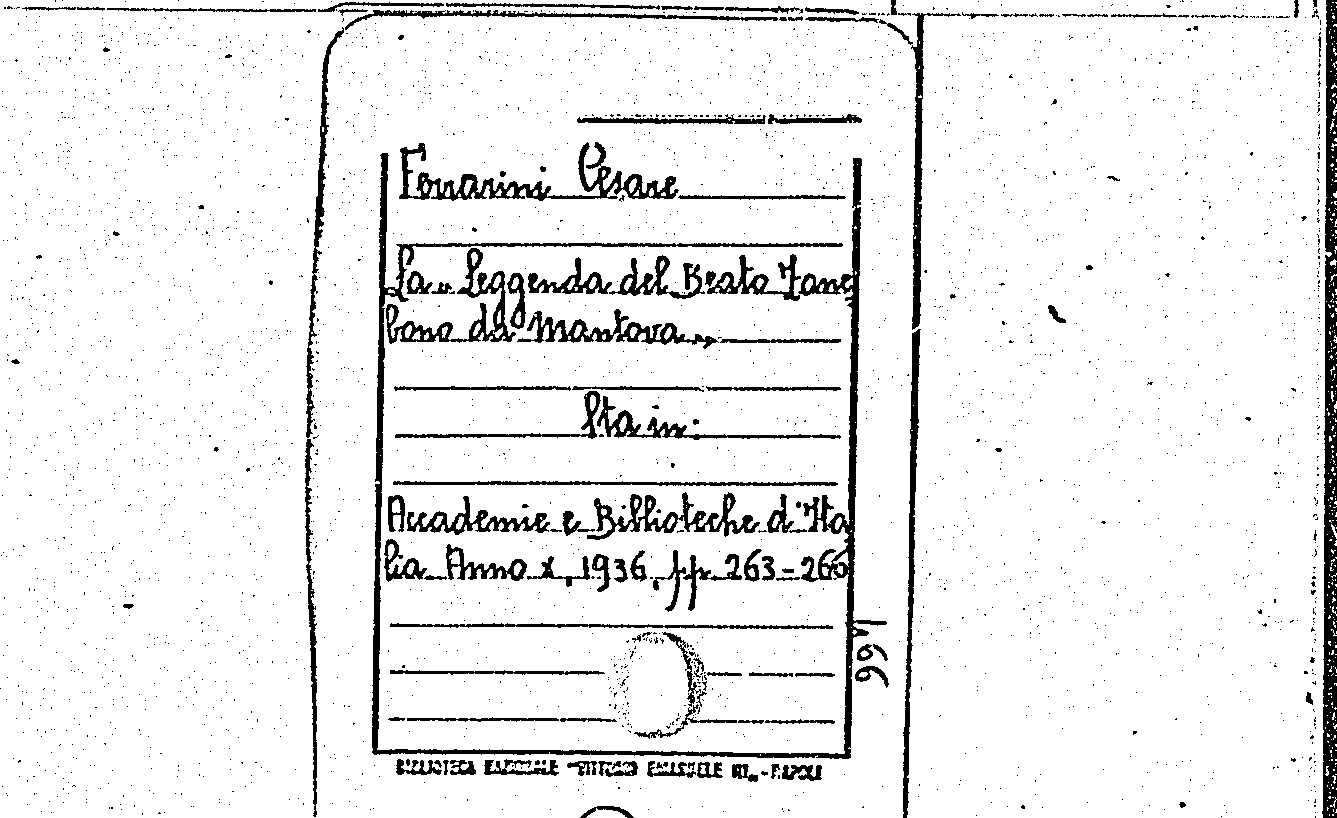 Ferrarini Cesare
La „ Leggenda del Beato Jane
bono da Mantova „
Sta in:
Accademie e Biblioteche d'Ita
lia Anno X, 1936, pp. 263-266
BIBLIOTECA NAZIONALE "VITTORIO EMANUELE III„ - NAPOLI